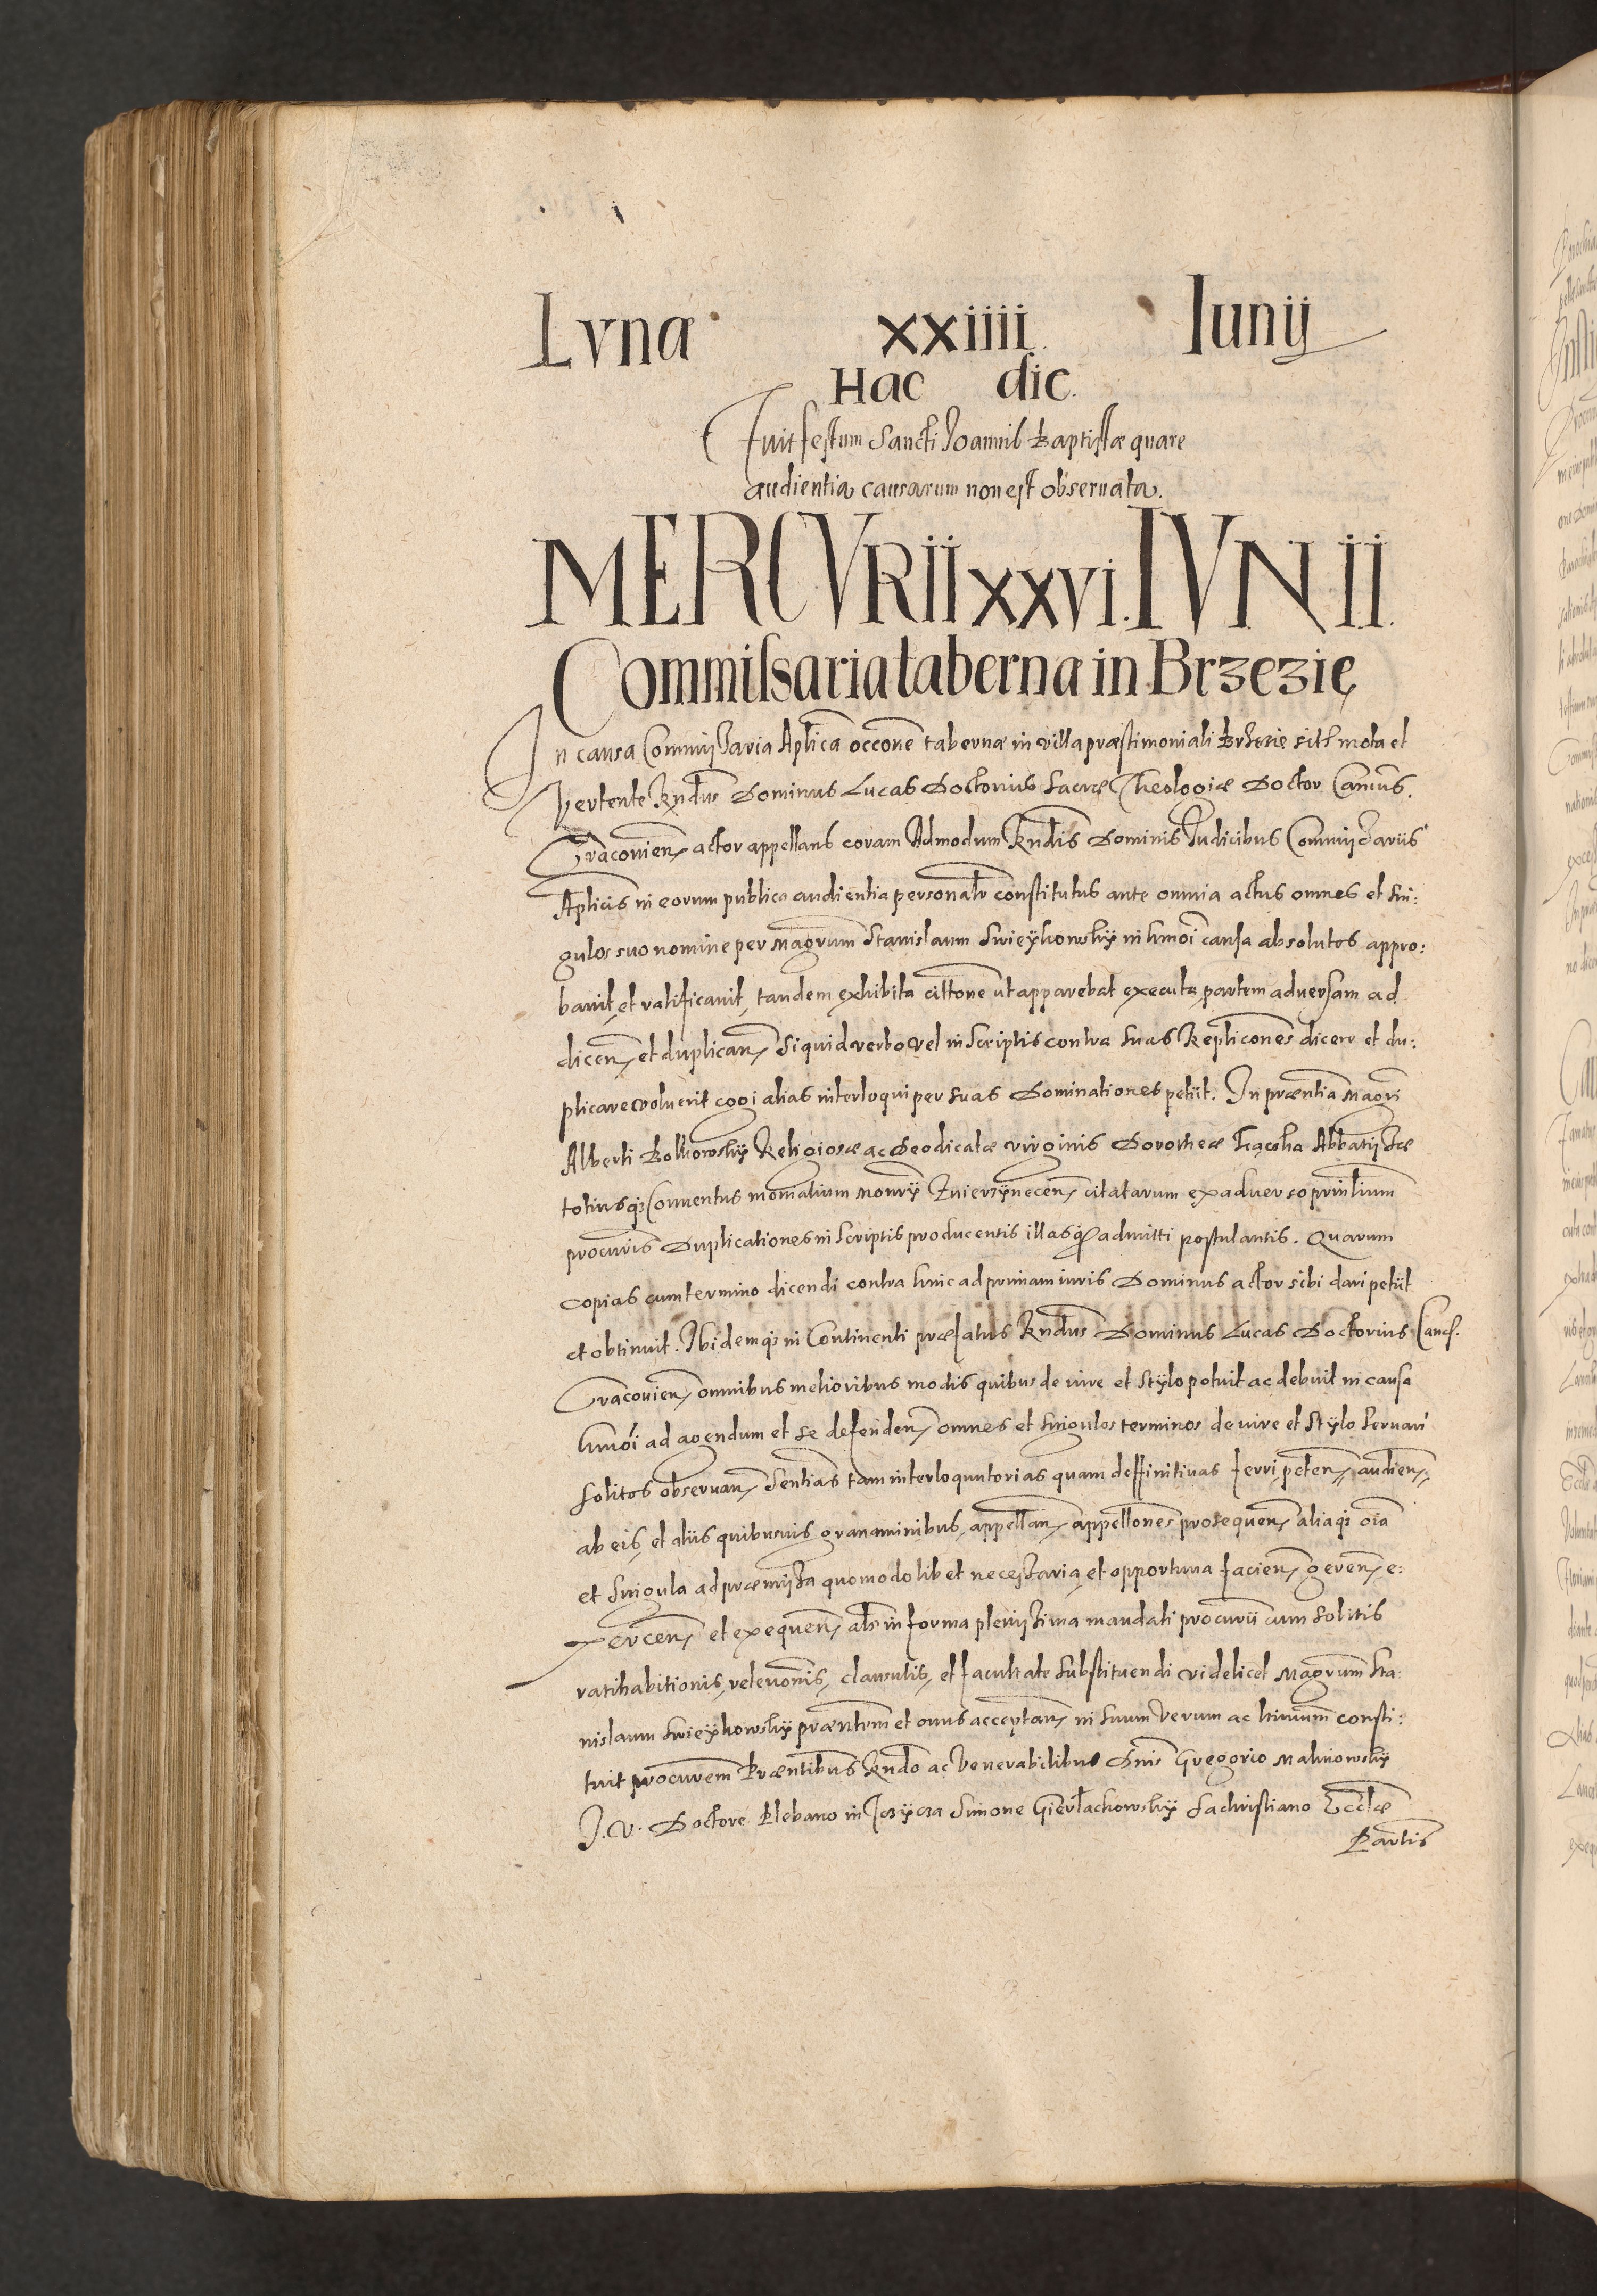 Lvnæ xxiiii. Iunij
Hac die.
Fuit festum Sancti Joannis Baptistæ quare
audientia causarum non est obseruata.
MERCVRII XXVI. IVNII.
Commissaria taberna in Brzezie
In causa Commissaria Aplica occone tabernæ in villa præstimoniali Brzezie sith mota et
vertente Rndus Dominus Lucas Doctorius Sacræ Theologiæ Doctor Cancus.
Cracouien actor appellans coram Admodum Rndis Dominis Judicibus Commissariis
Aplicis in eorum publica audientia personalr constitutus ante omnia actus omnes et sin:
gulos suo nomine per Magrum Stanislaum Swieÿkowskÿ in hmoi causa absolutos appro:
bauit, et ratificauit, tandem exhibita cittone ut apparebat executa partem aduersam ad
dicen et duplican si quid verbo vel in scriptis contra suas Replicones dicere et du:
plicare voluerit cogi alias interloqui per suas Dominationes petiit. In præntia Magri
Alberti Bolkowskÿ Religiosæ ac Deodicatæ virginis Dorotheæ Kącska Abbatissæ
totiusq Conuentus monialium Monrÿ Zwierzÿnecen citatarum ex aduerso prinlium
procuris Duplicationes in scriptis producentis illasq admitti postulantis. Quarum
copias cum termino dicendi contra hinc ad primam iuris Dominus actor sibi dari petiit
et obtinuit. Ibidemq in Continenti præfatus Rndus Dominus Lucas Doctorius Cancs.
Cracouien omnibus melioribus modis quibus de iure et stÿlo potuit ac debuit in causa
hmoi ad agendum et se defenden omnes et singulos terminos de iure et stÿlo seruari
solitos obseruan sentias tam interloquutorias quam deffinitiuas ferri peten, audien,
ab eis, et aliis quibusuis grauaminibus, appellan, appellones prosequen aliaq oia
et singula ad præmissa quomodolibet necessaria, et opportuna facien, geren, e:
xercen et exequen als in forma plenissima mandati procurii cum solitis
ratihabitionis, releuonis, clausulis, et facultate substituendi videlicet Magrum Sta:
nislaum Swieÿkowskÿ præntem et onus acceptan, in suum verum ac ltimum consti:
tuit procurem Præntibus Rndo ac Venerabilibus Dnis Gregorio Malinowskÿ
J. V. Doctore Plebano in Jczÿcza Simone Gierlachowskÿ Sachristiano Ecclæ
Partis